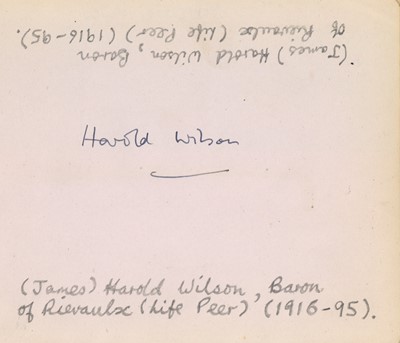 (James) Harold Wilson, Baron
of Rievaulx (Life Peer) (1916-95).
Harold Wilson
(James) Harold Wilson, Baron
of Rievaulx (Life Peer) (1916-95).